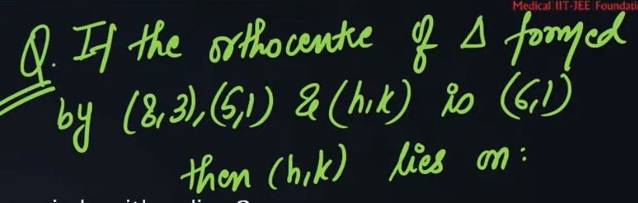 Medical IIT-JEE Foundati
Q. If the orthocentre of Δ formed
by (8,3), (5,1) & (h,k) is (6,1)
then (h,k) lies on: